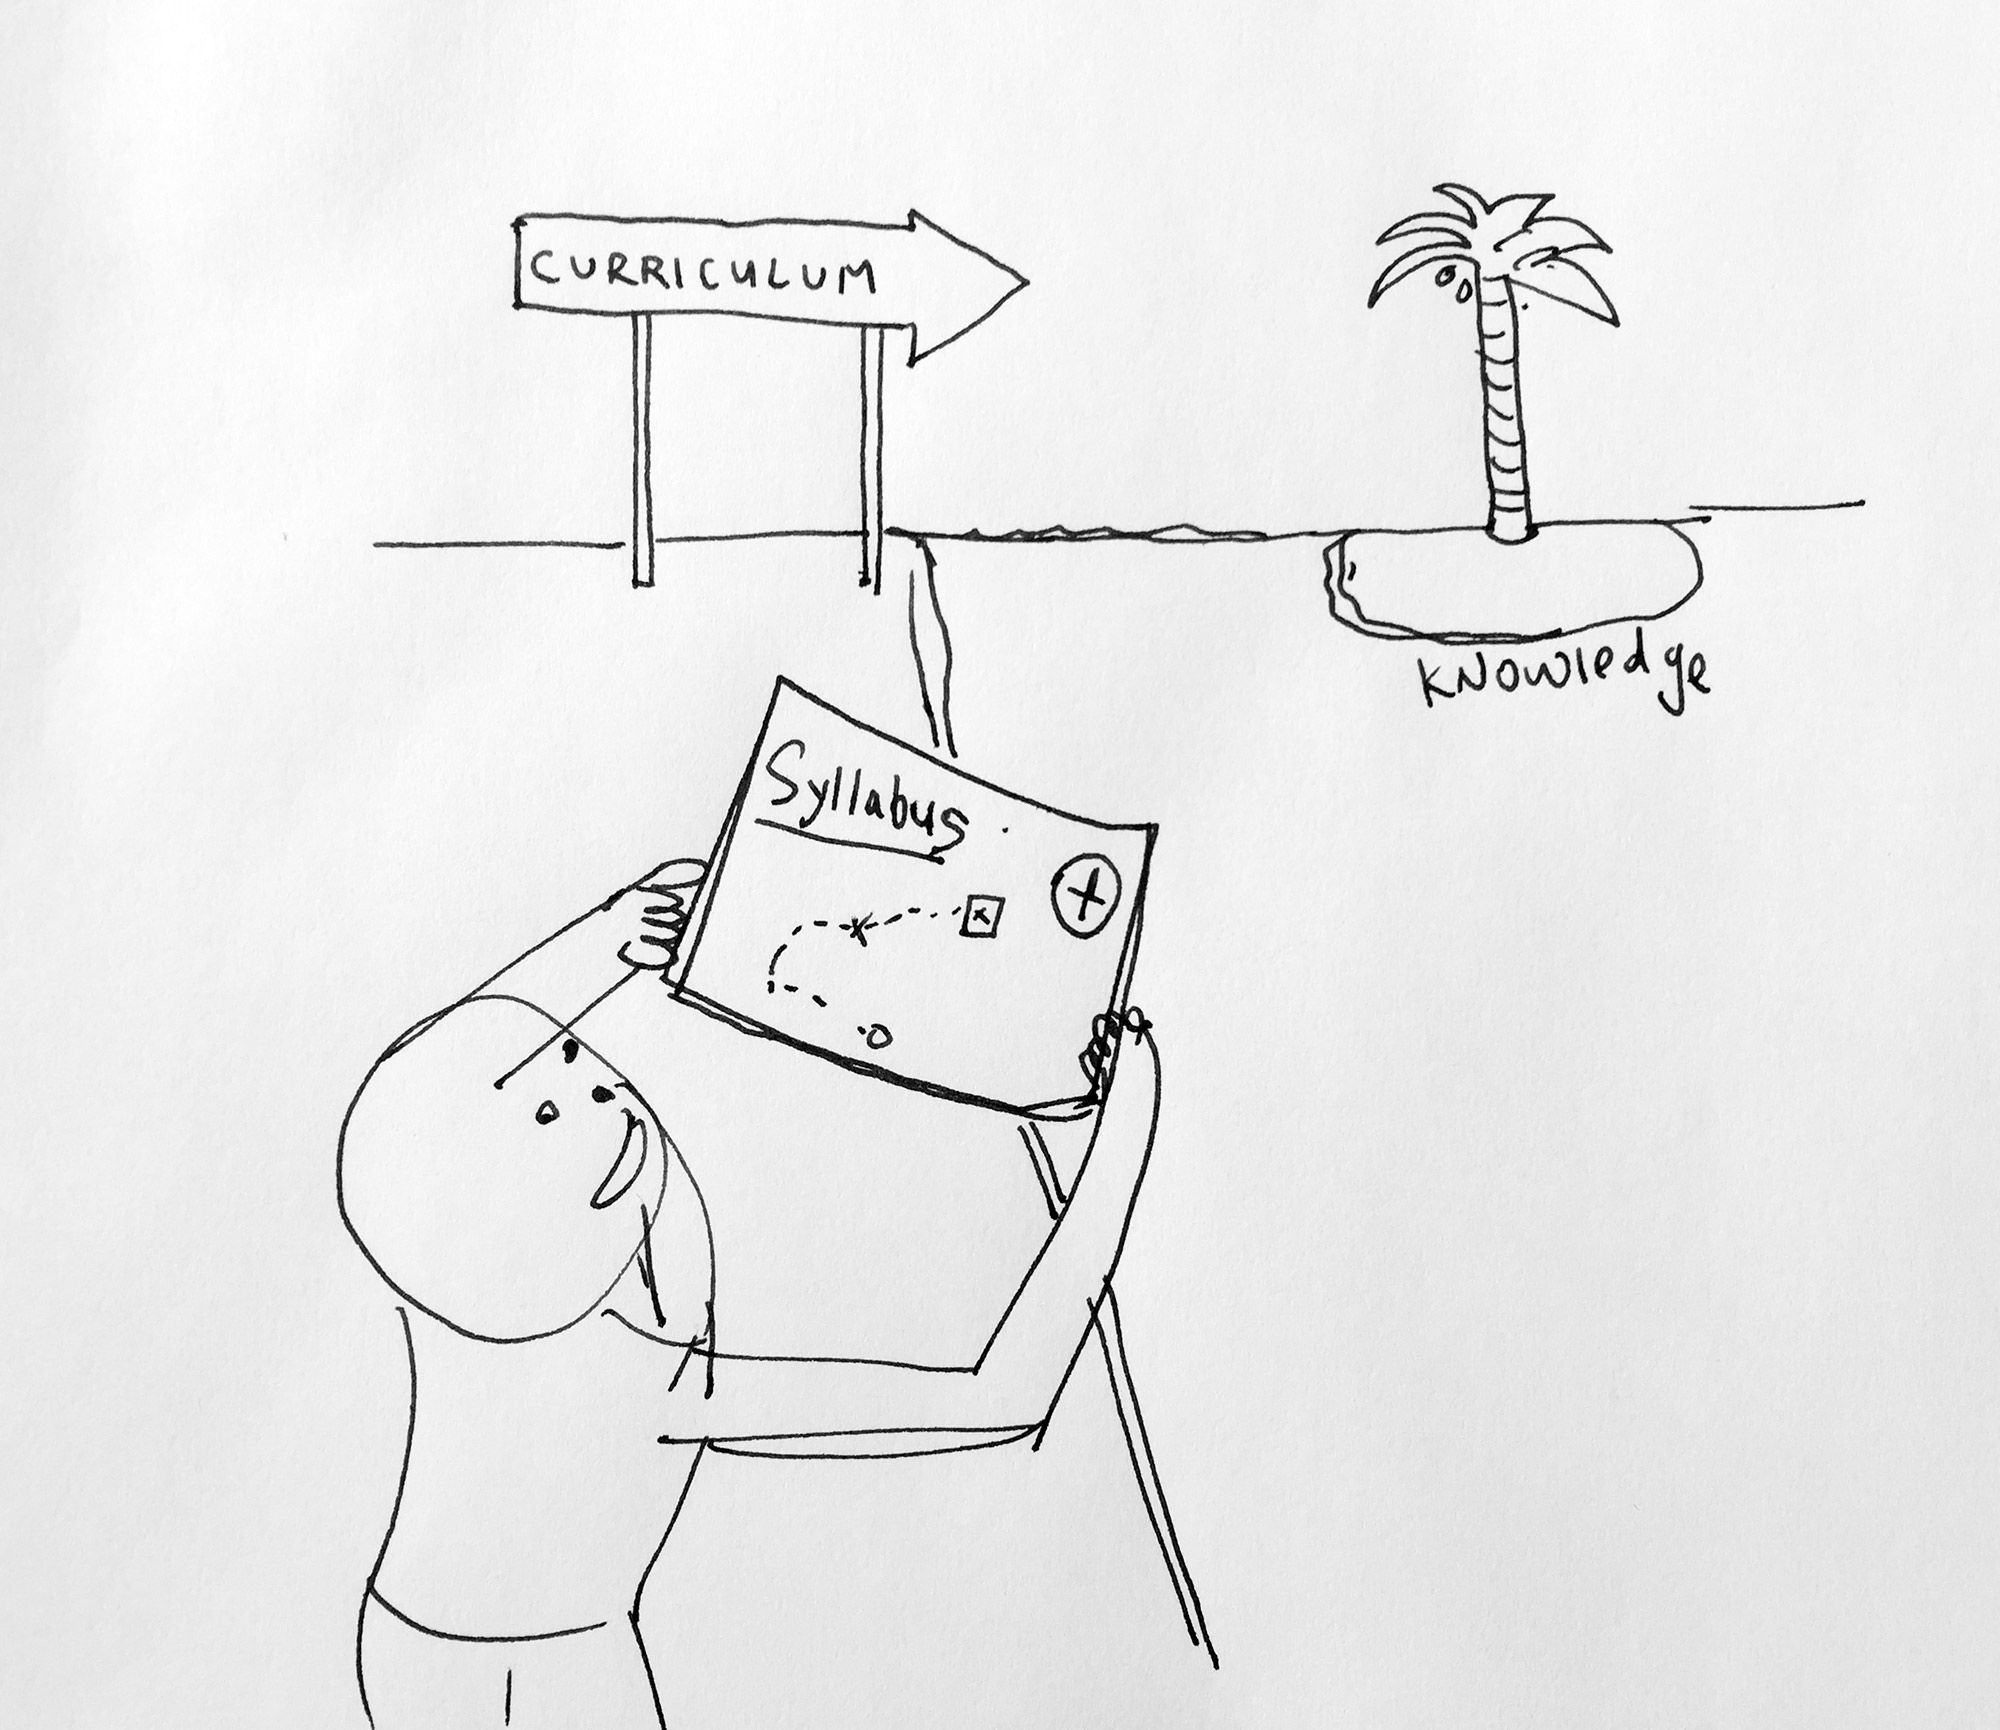 CURRICULUM
Knowledge
Syllabus